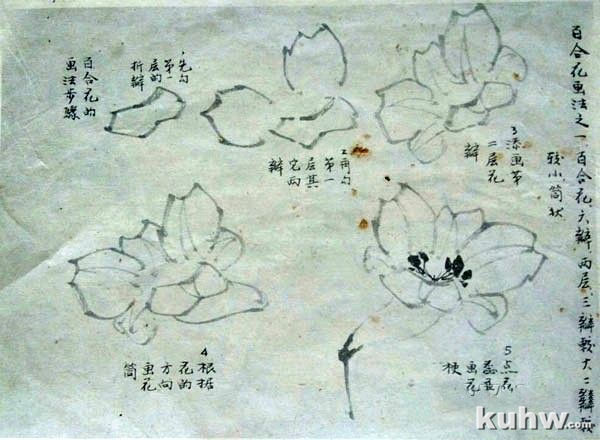 百合花画法之一百合花、六瓣、两层、三瓣较大二瓣
小筒状
百合花的
画法步骤
1先勾
第一
层的
折瓣
2再勾
第一
层其
它两
瓣
3添画第
二层花
瓣
4根据
花的
方向
画花
筒
5点花
蕊并
画花
梗
kuhw.com